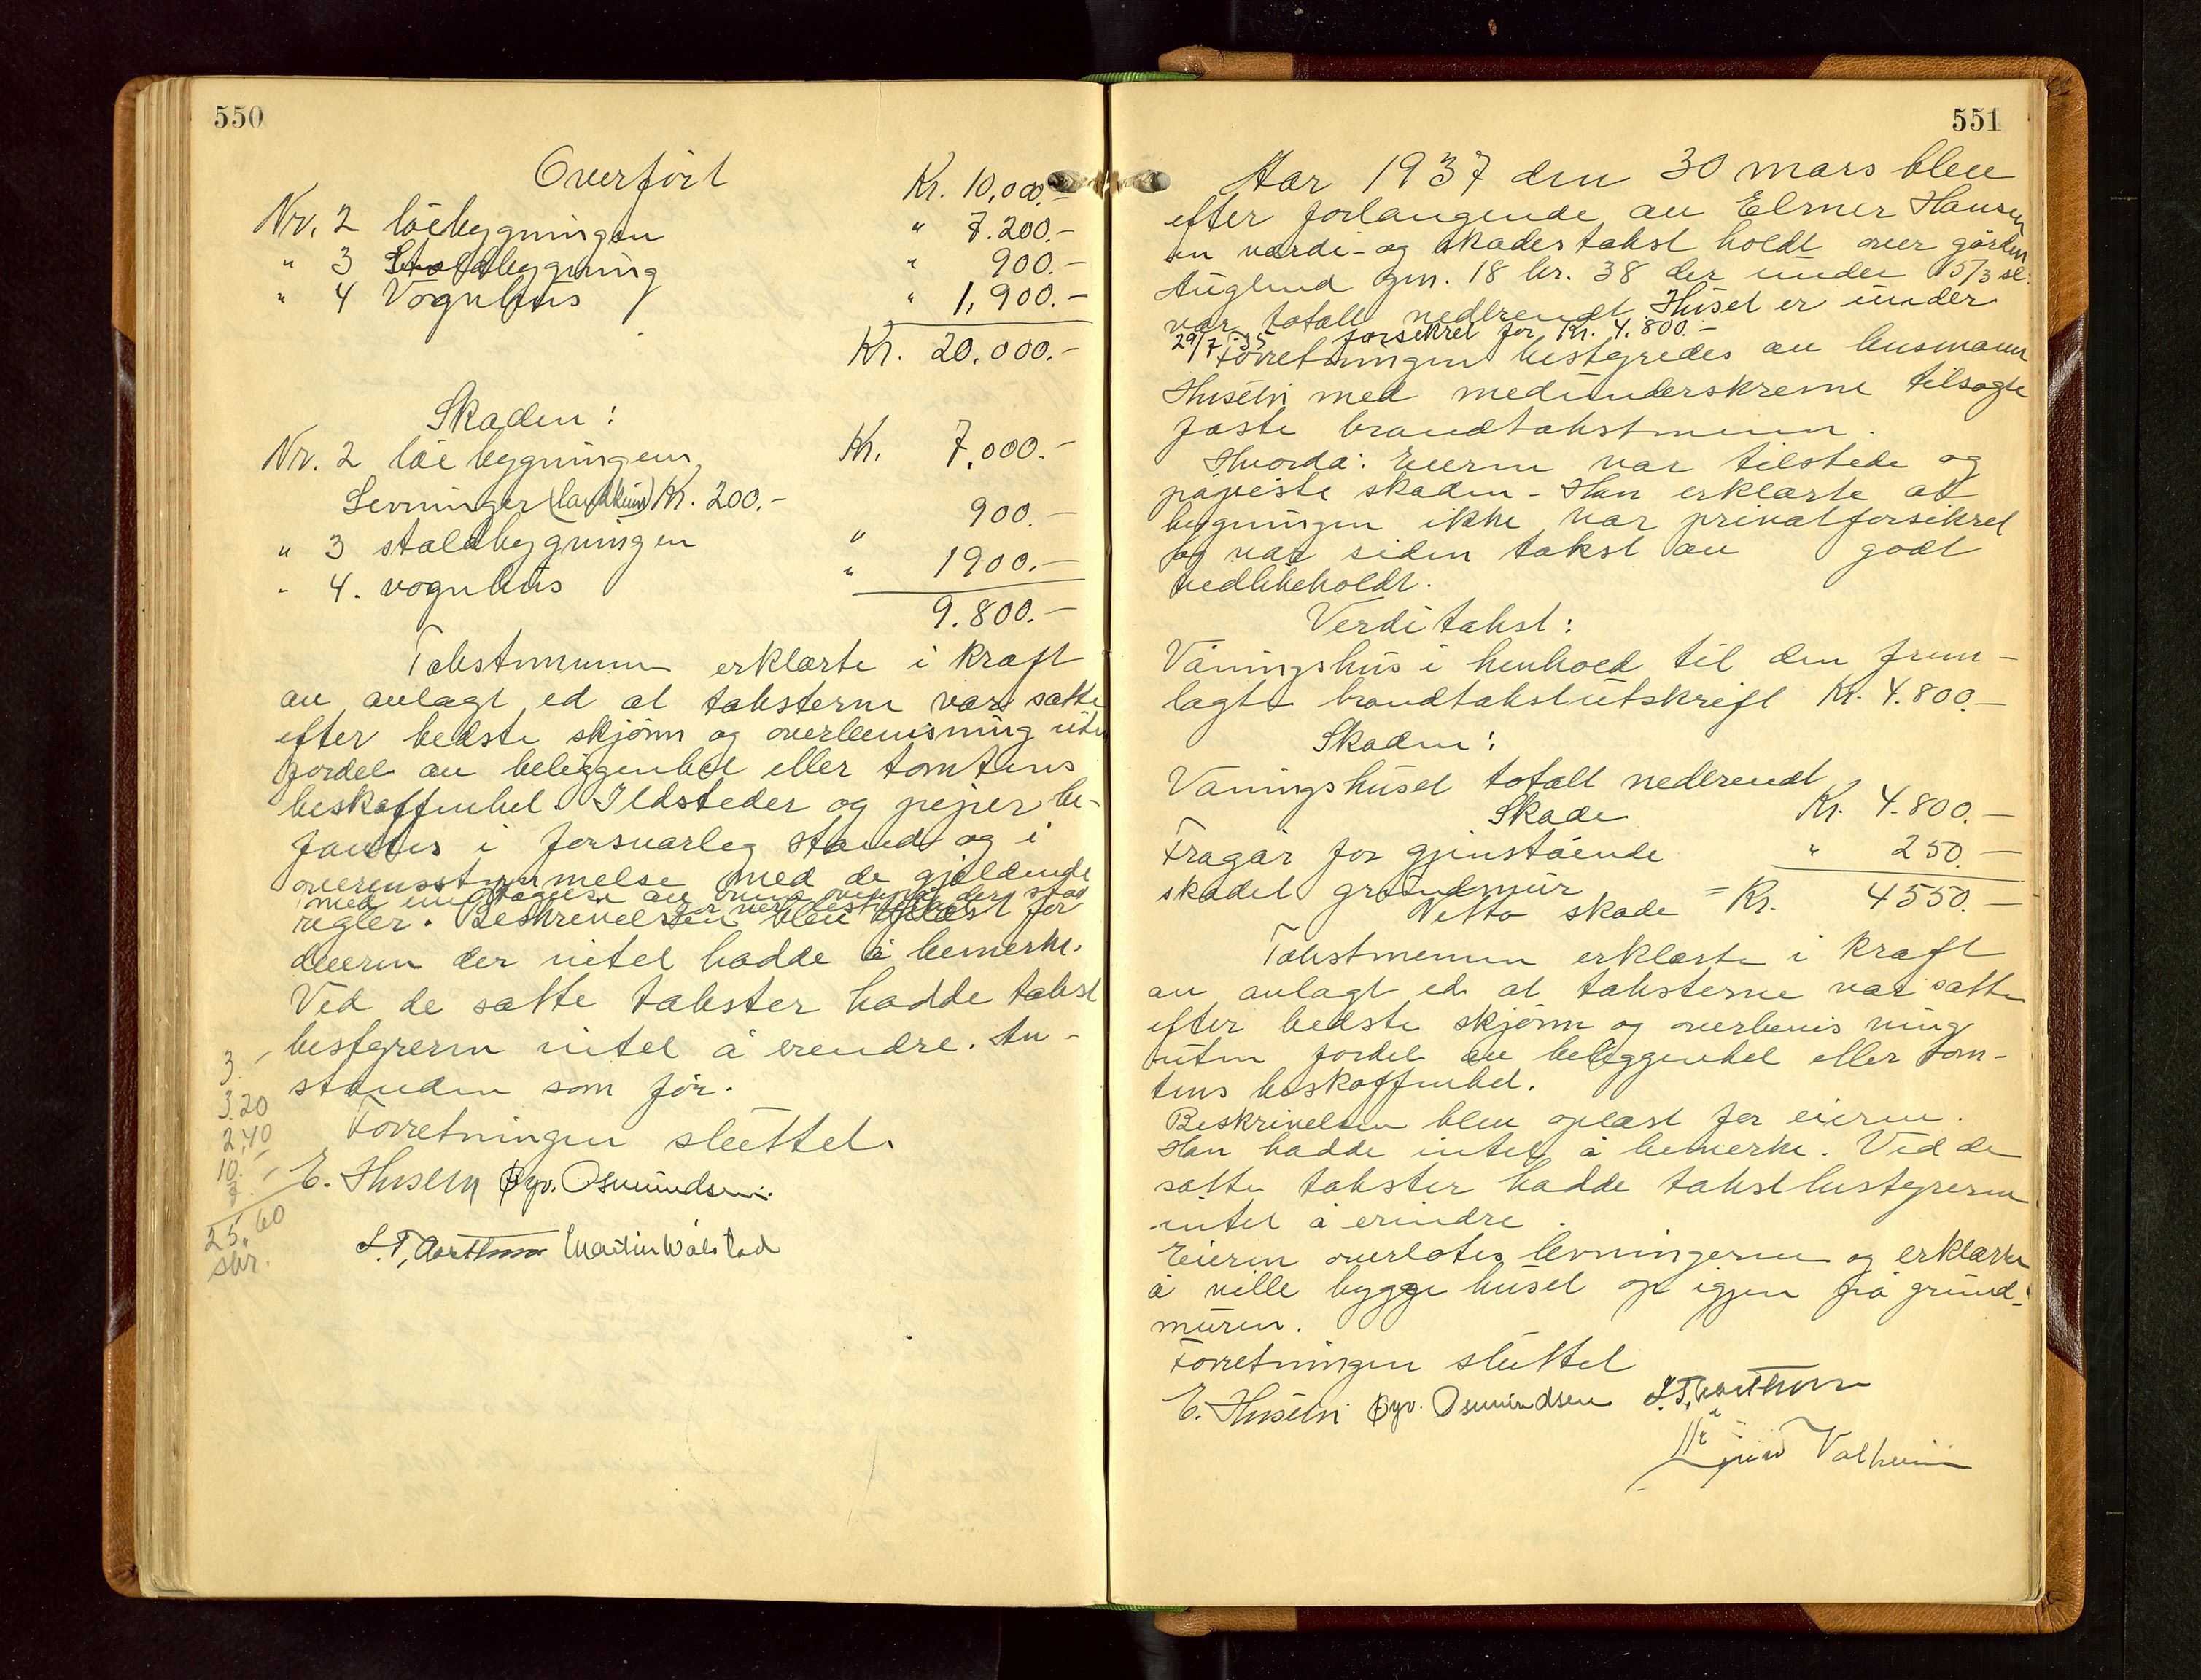 550
Overført Kr. 10,000.-
Nr. 2 löebygningen " 7.200.-
" 3 Staldbygning " 900.-
" 4 Vognhus " 1,900.-
Kr. 20.000.-
Skaden:
Nr. 2 löebygningen Kr. 7,000.-
Levninger Kr. 200.-
" 3 staldbygningen " 900.-
" 4. vognhus " 1900.-
9.800.-
Takstmennene erklærte i kraft
av avlagt ed at taksterne var satte
efter bedste skjönn og overbevisning uten
fordel av beliggenhet eller tomtens
beskaffenhet. Ildsteder og piper be-
fantes i forsvarleg stand og i
overensstemmelse med de gjeldende
med undtagelse av
regler. Beskrivelsen blev oplæst for
eieren der intet hadde å bemerke.
Ved de satte takster hadde takst
bestyreren intet å erindre. An-
standen som för.
Forretningen sluttet.
3.-
3.20
2,40
10.-
7.-
25.60
skr.
E. Husebø Gyv. Osmundsen.
S. T. Aartun Martin Wålstad
551
Aar 1937 den 30 mars blev
efter forlangende av Elmer Hansen
en verdi- og skadestakst holdt over gården
Auglend gnr. 18 br. 38 der under 15/3 sl.
var totalt nedbrendt. Huset er under
29/7-35 forsikret for Kr. 4.800.-
Forretningen bestyredes av lensmann
Husebø med medunderskrevne tilsagte
faste brandtakstmenn.
Hvorda: Eieren var tilstede og
påviste skaden - Han erklærte at
bygningen ikke var privatforsikret
og var siden takst av godt
vedlikeholdt.
Verditakst:
Våningshus i henhold til den frem-
lagte brandtakstutskrift Kr. 4.800.-
Skaden:
Våningshuset totalt nedbrendt
Skade Kr. 4.800.-
Fragår for gjenstående " 250.-
skadet grundmur
Netto skade = Kr. 4550.-
Takstmennene erklærte i kraft
av avlagt ed at taksterne var satte
efter bedste skjönn og overbevisning
uten fordel av beliggenhet eller tom-
tens beskaffenhet.
Beskrivelsen blev oplæst for eieren.
Han hadde intet å bemerke. Ved de
satte takster hadde takstbestyreren
intet å erindre.
Eieren overlotes levningerne og erklærte
å ville bygge huset op igjen på grund-
muren.
Forretningen sluttet
E. Husebø Gyv. Osmundsen S. T. Aartun
Valheim